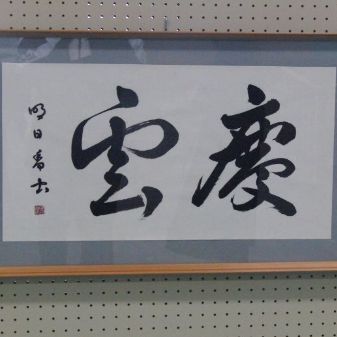 慶雲
明日香書